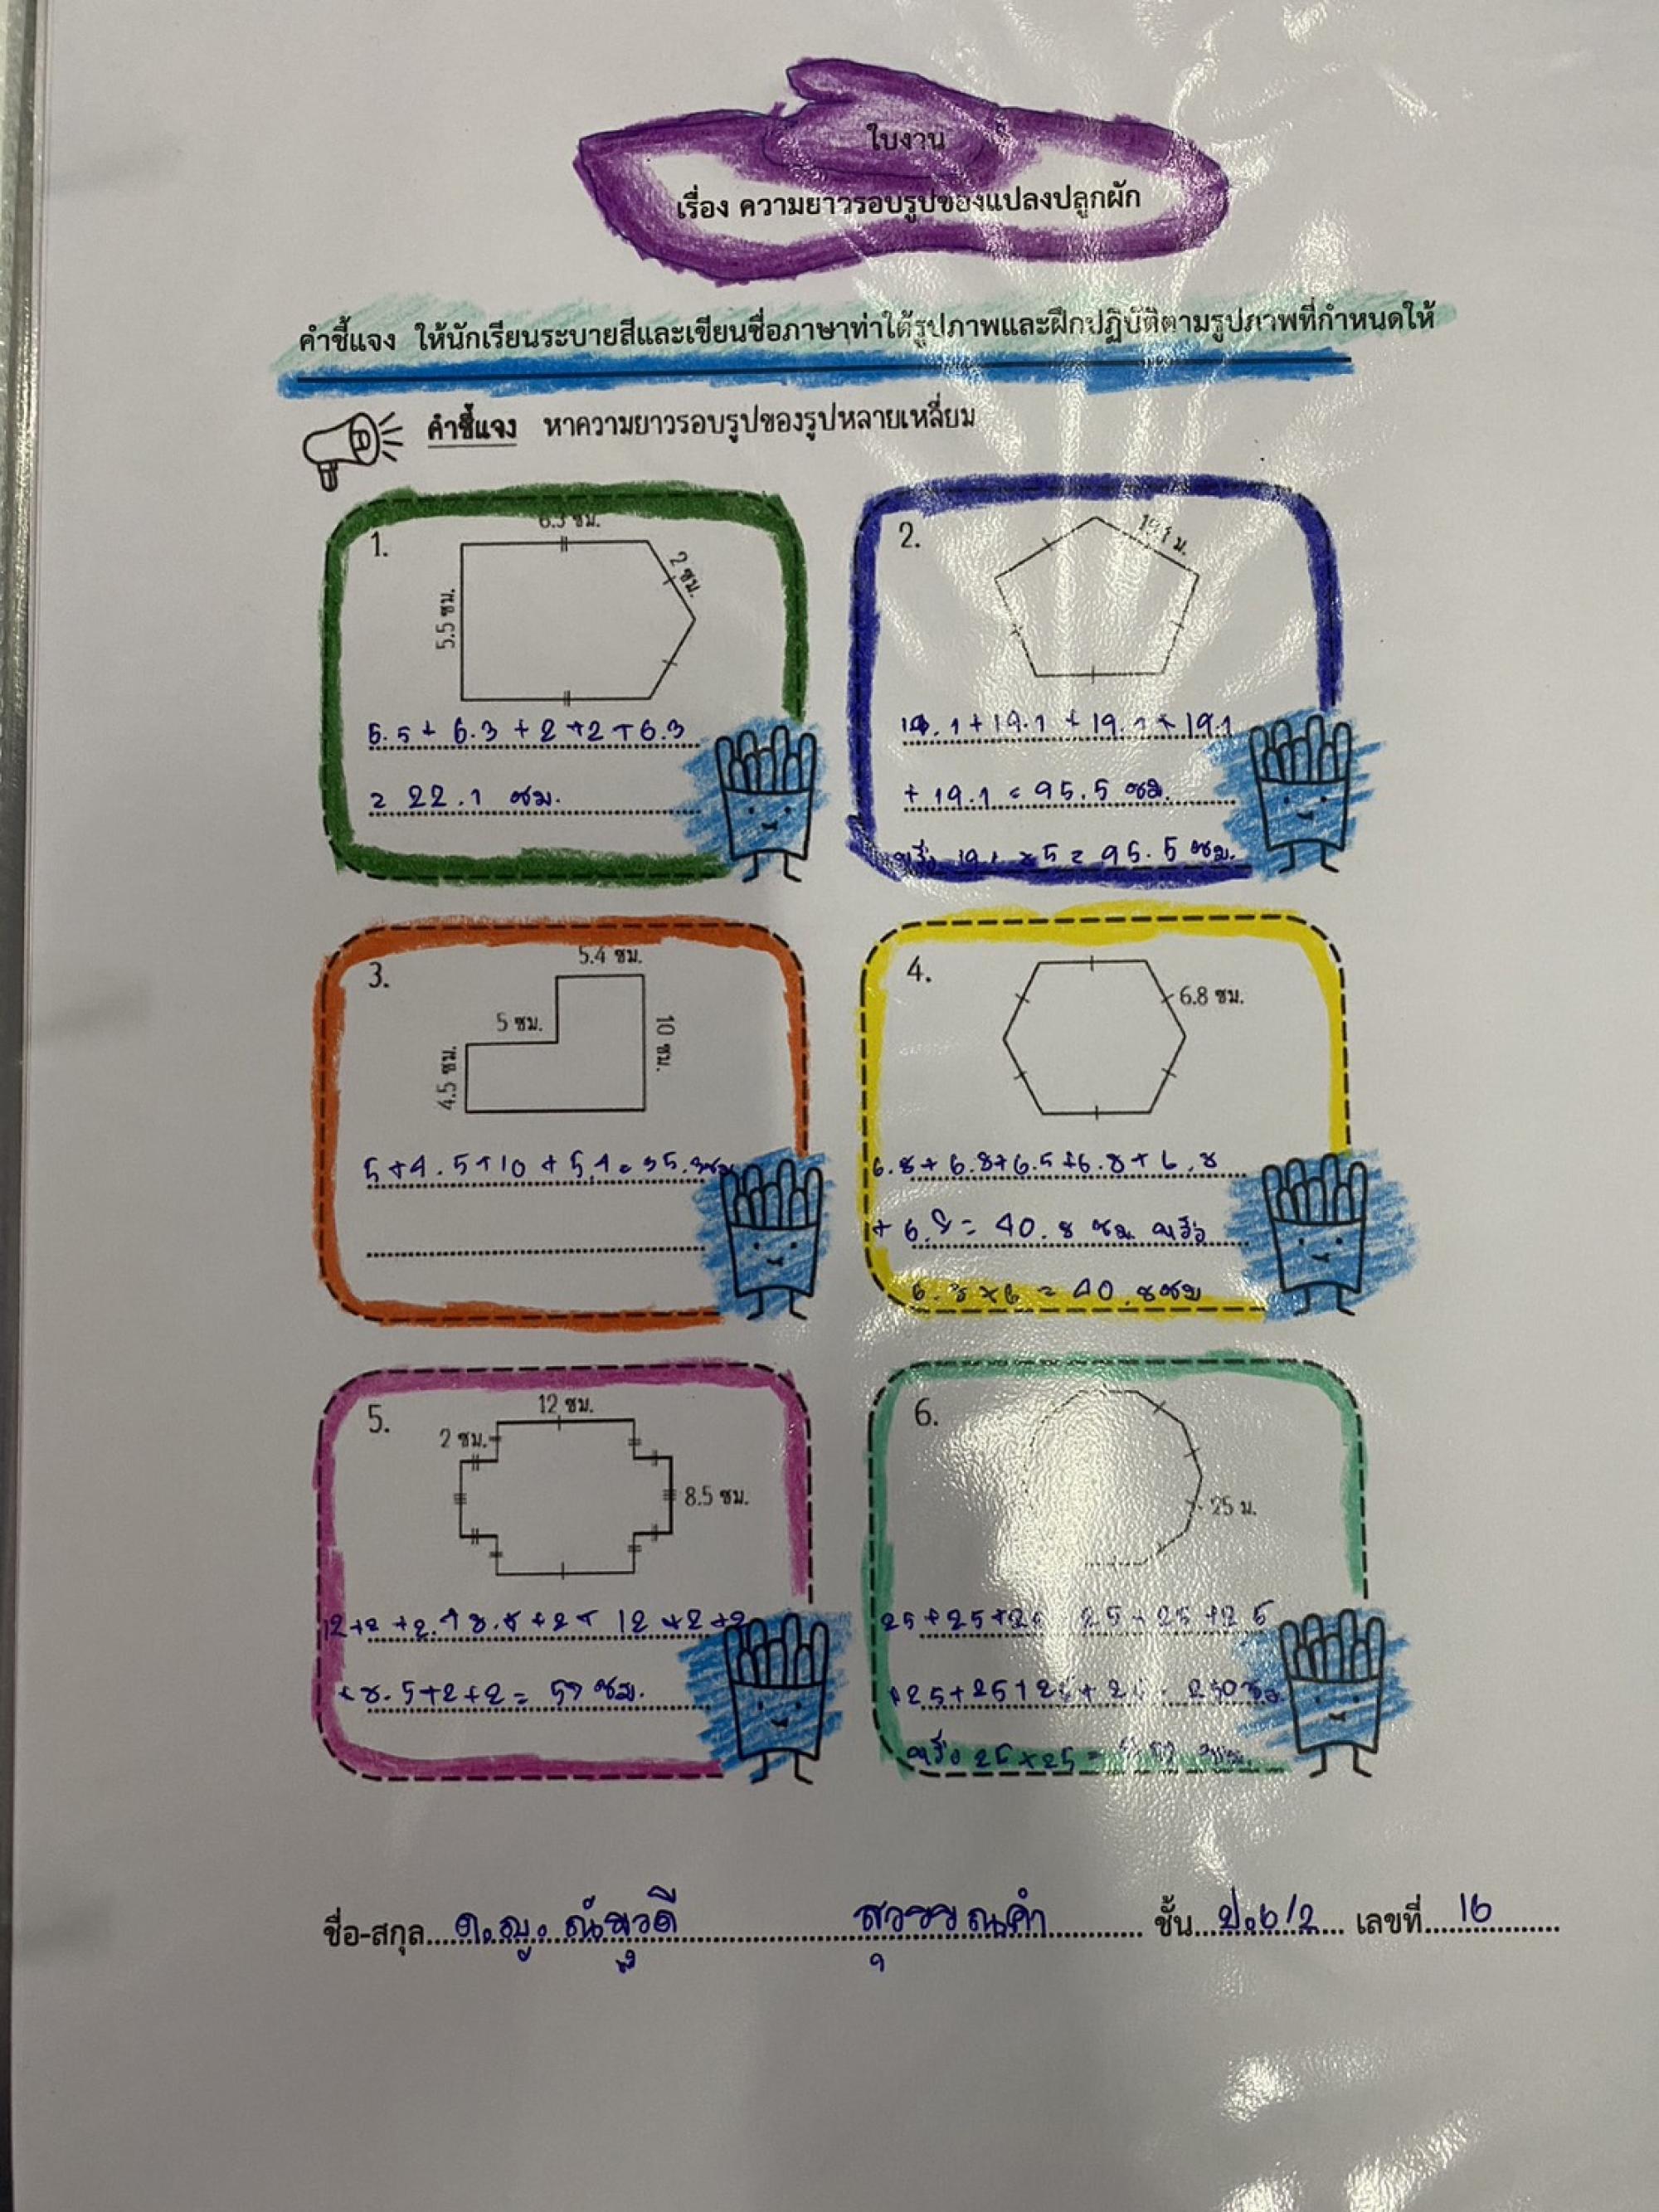 ใบงาน
เรื่อง ความยาวรอบรูปของแปลงปลูกผัก
คำชี้แจง ให้นักเรียนระบายสีและเขียนชื่อภาษาท่าใต้รูปภาพและฝึกปฏิบัติตามรูปภาพที่กำหนดให้
คำชี้แจง หาความยาวรอบรูปของรูปหลายเหลี่ยม
1.
6.3 ซม.
2 ซม.
5.5 ซม.
5.5 + 6.3 + 2 + 2 + 6.3
= 22.1 ซม.
2.
19.1 ม.
19.1 + 19.1 + 19.1 + 19.1
+ 19.1 = 95.5 ซม.
หรือ 19.1 x 5 = 95.5 ซม.
3.
5.4 ซม.
5 ซม.
10 ซม.
4.5 ซม.
5 + 4.5 + 10 + 5.4 = 35.
4.
6.8 ซม.
6.8 + 6.8 + 6.5 + 6.8 + 6.8
+ 6.8 = 40.8 ซม. หรือ
6.8 x 6 = 40.8 ซม
5.
12 ซม.
2 ซม.
8.5 ซม.
12 + 2 + 2 + 8.5 + 2 + 12 + 2 + 2
+ 8.5 + 2 + 2 = 57 ซม.
6.
25 ม.
25 + 25 + 25 25 + 25 + 25
+ 25 + 25 + 25 + 25 250
หรือ 25 x 25 =
ชื่อ-สกุล ด.ญ. สุวรรณคำ ชั้น ป.6/2 เลขที่ 16